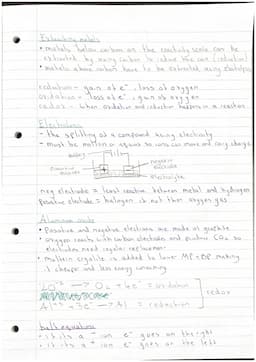 Extracting metals
• metals below carbon on the reactivity scale can be
extracted by using carbon to reduce the ore (reduction)
• metals above carbon have to be extracted using electrolysis
reduction - gain of e⁻, loss of oxygen
oxidation - loss of e⁻, gain of oxygen
redox - when oxidation and reduction happens in a reaction
Electrolysis
- the splitting of a compound using electricity
- must be molten or aqueous so ions can move and carry charge
battery
positive electrode
negative electrode
electrolyte
neg electrode = least reactive between metal and hydrogen
positive electrode = halogen is not then oxygen gas
Aluminium oxide
• Positive and negative electrodes are made of graphite
• oxygen reacts with carbon electrodes and produces CO₂ so
electrodes need regular replacement
• molten cryolite is added to lower MP + BP making
it cheaper and less energy consuming
2O⁻² → O₂ + 4e⁻ = oxidation
redox
Al⁺³ + 3e⁻ → Al = reduction
half equations
• if its a - ion e⁻ goes on the right
• if its a + ion e⁻ goes on the left